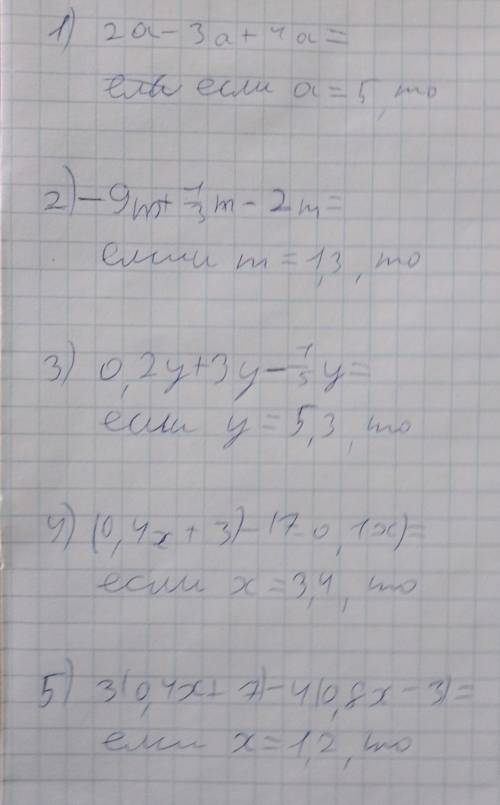 1) 2a - 3a + 4a =
если a = 5, то
2) - 9m + 1/3 m - 2m =
если m = 1,3, то
3) 0,2y + 3y - 1/5 y =
если y = 5,3, то
4) (0,4x + 3) - (7 - 0,1x) =
если x = 3,4, то
5) 3(0,4x + 7) - 4(0,8x - 3) =
если x = 1,2, то